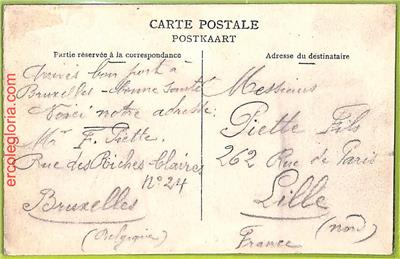 CARTE POSTALE
POSTKAART
Partie réservée à la correspondance
Adresse du destinataire
Arrivés bon port à
Bruxelles - Bonne Santé
Voici notre adresse:
Mr F. Piette.
Rue des Riches Claires
N° 24
Bruxelles
(Belgique)
Messieurs
Piette Fils
262 Rue de Paris
Lille
(Nord)
France
ercolegloria.com